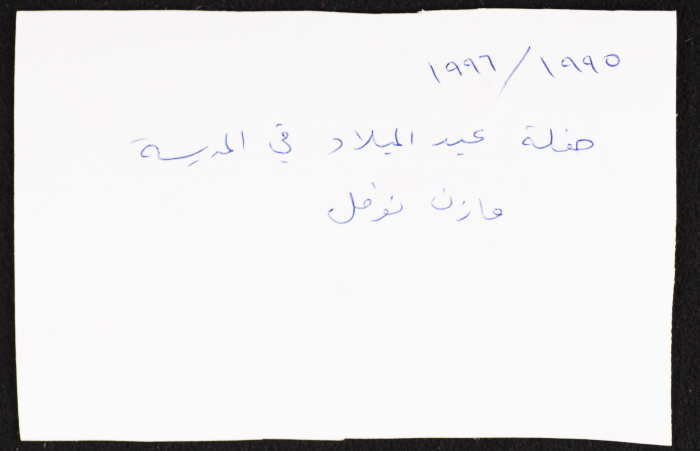 ١٩٩٦/١٩٩٥
حفلة عيد الميلاد في المدرسة
مازن نوفل